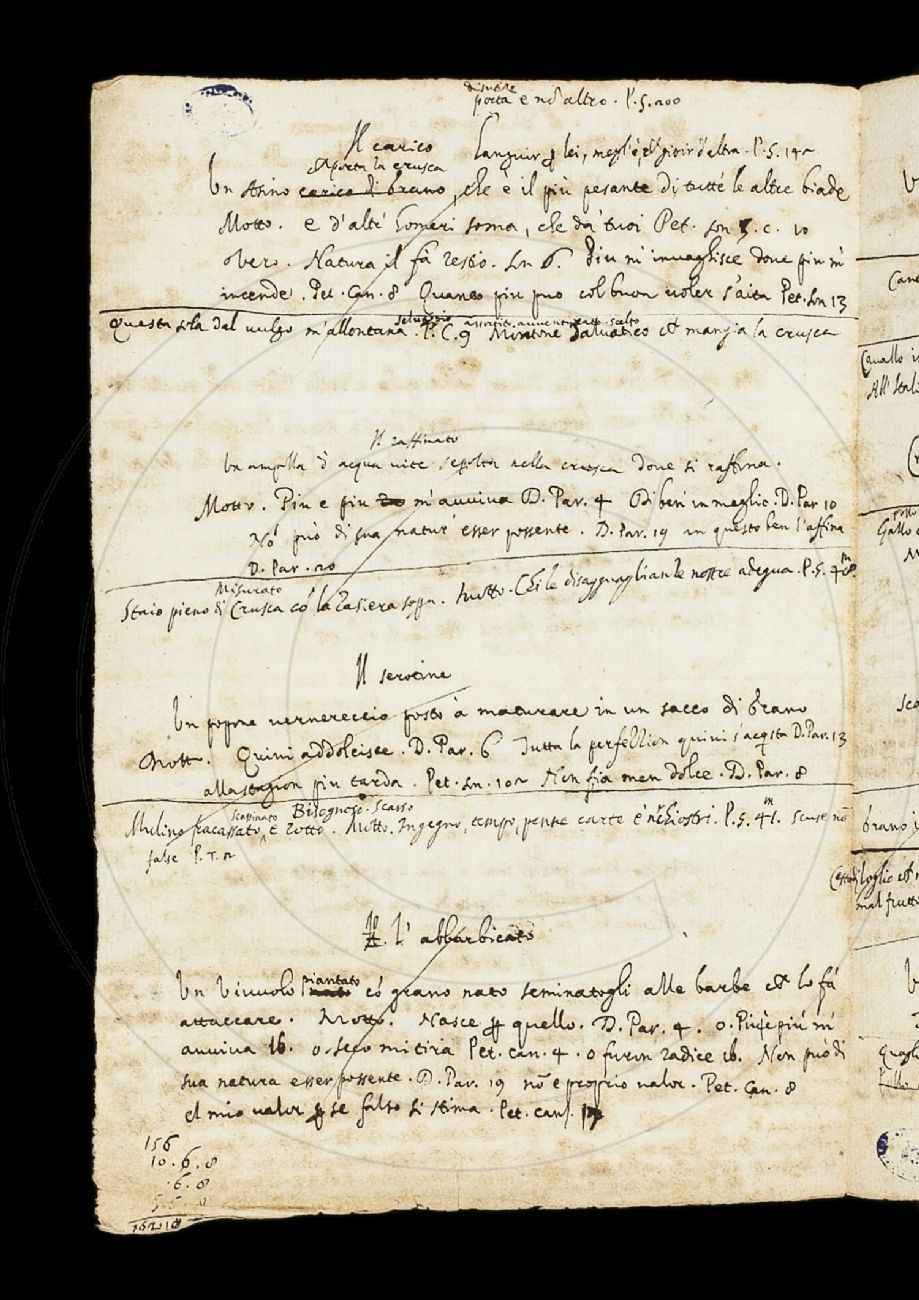 disutile
porta e nō altro. P. S. 200
Il carico Languir ꝑ lei, megl'è, che gioir d'altra. P. S. 142
ch porta la crusca
Un Asino carico di brano, che è il piu pesante di tutte le altre biade
Motto. e d'altr' homeri soma, che da' tuoi Pet. son 5. c. 10
overo. Natura il fà restio. Sn 6. Piu m'invaghisce dove piu m'
incende. Pet. Can. 8 Quanto piu puo col buon voler s'aita Pet. Sn 13
selvaggio assortito. avventurato. scelto
Questa sola dal vulgo m'allontana. P. C. 9 Montone salvatico ch mangia la crusca
Il raffinato
Un ampolla d'acqua vite sepolta nella crusca dove si raffina.
Motto. Piu e piu m'avviva D. Par. 4 Di ben in meglio. D. Par 10
Nō può di sua natur' esser possente. D. Par. 19 in questo ben s'affina
D. Par. 20
Misurato
Staio pieno di Crusca có la Rasiera sopra. Motto. Chi le disagguaglianze nostre adegua. P. S. 48.
Il serotine
Un popone vernereccio posto à maturare in un sacco di Grano
Mott. Quivi addolcisce. D. Par. 6 Tutta la perfettion quivi s'acqsta D. Par. 13
alla stagion piu tarda. Pet. Sn. 102 Non fia men dolce. D. Par. 8
Scassinato Bisognoso. Scarso
Mulino fracassato, e rotto. Motto. Ingegno, tempo, penne carte e'nchiostri. P. S. 41. scuse nō
false P. T. 2
Il
L' abbarbicato
piantato
Un Viuuolo nato có grano nato seminatogli alle barbe ch lo fá
attaccare. Motto. Nasce ꝑ quello. D. Par. 4. o. Più e più m'
avviva ib. o seco mi tiria Pet. can. 4. o furon radice ib. Non può di
sua natura esser possente. D. Par. 19 nō è proprio valor. Pet. Can. 8
el mio valor ꝑ se falso si stima. Pet. can.
156
10. 6. 8
. 6. 8